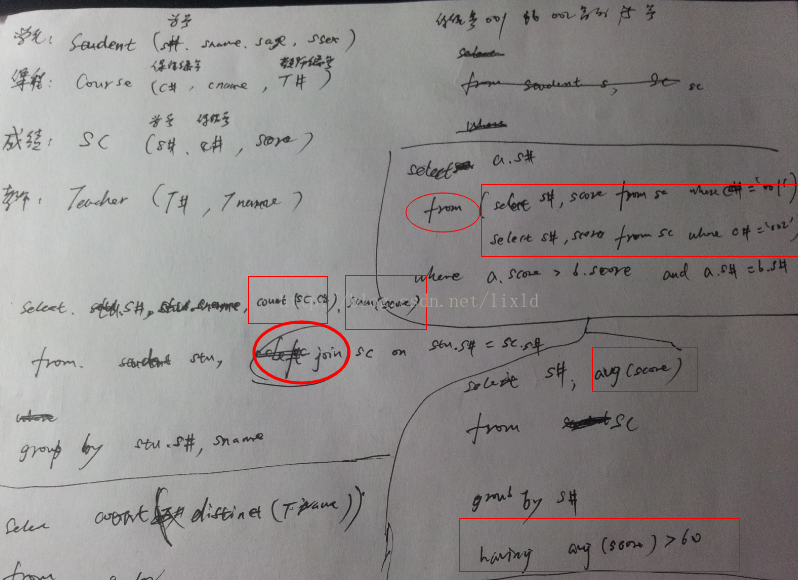 学生: Student (s#, sname, sage, ssex)
学号
课程: Course (c#, cname, T#)
课程编号 教师编号
成绩: SC (s#, c#, score)
学号 课程号
教师: Teacher (T#, Tname)
select stu.s#, stu.sname, count(sc.c#), sum(score)
from student stu, left join sc on stu.s# = sc.s#
where
group by stu.s#, sname
Selec count(distinct(Tname))
from
001 002 学号
select
from student s, sc sc
where
select a.s#
from (select s#, score from sc where c#='001')
select s#, score from sc where c#='002'
where a.score > b.score and a.s#=b.s#
dn.net/lixld
select s#, avg(score)
from SC
group by s#
having avg(score)>60